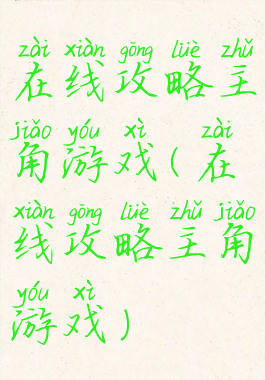 zài xiàn gōng lüè zhǔ
在线攻略主
jiǎo yóu xì zài
角游戏(在
xiàn gōng lüè zhǔ jiǎo
线攻略主角
yóu xì
游戏)